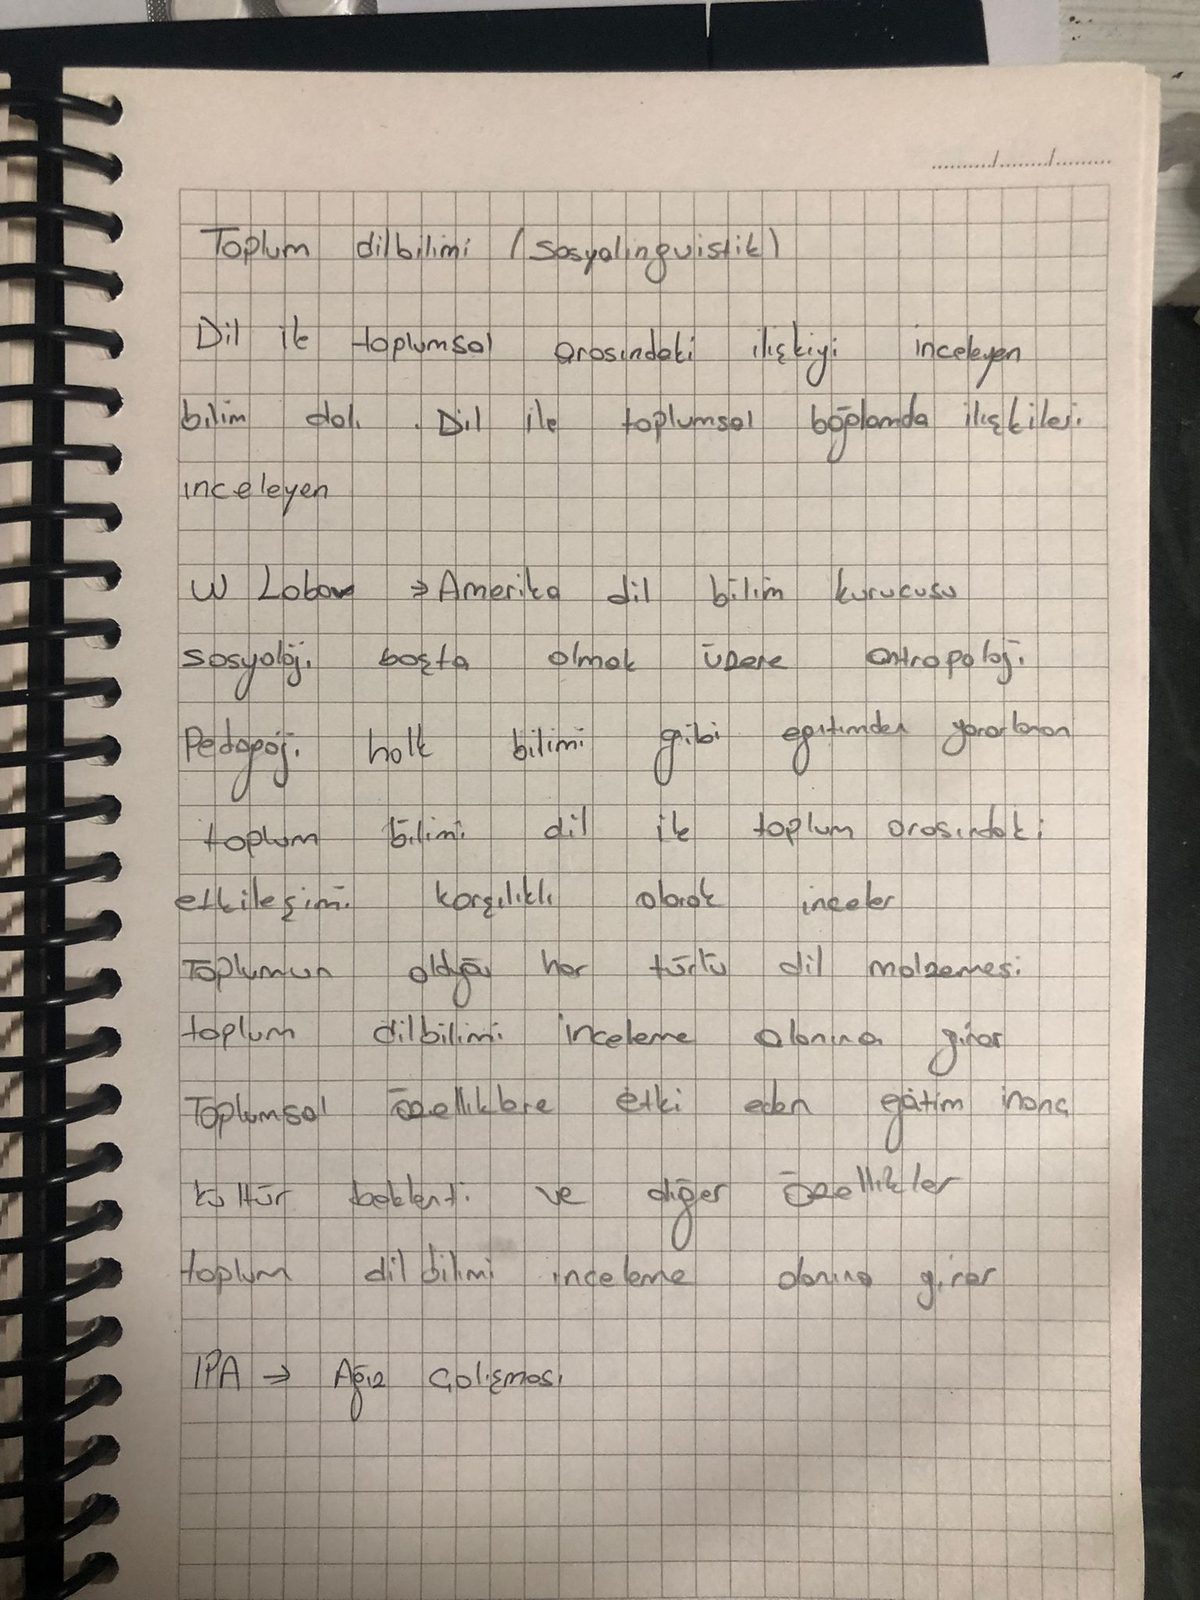 Toplum dilbilimi (Sosyalinguistik)
Dil ile toplumsal arasındaki ilişkiyi inceleyen
bilim dalı. Dil ile toplumsal bağlamda ilişkileri
inceleyen
W Labov → Amerika dil bilim kurucusu
Sosyoloji başta olmak üzere antropoloji
Pedagoji halk bilimi gibi egitimden yararlanan
toplum bilimi dil ile toplum arasındaki
etkileşimi karşılıklı olarak inceler
Toplumun olduğu her türlü dil malzemesi
toplum dilbilimi inceleme alanına girer
Toplumsal özelliklere etki eden eğitim inanç
kültür beklenti ve diğer özellikler
toplum dil bilimi inceleme alanına girer
IPA → Ağız Çalışması